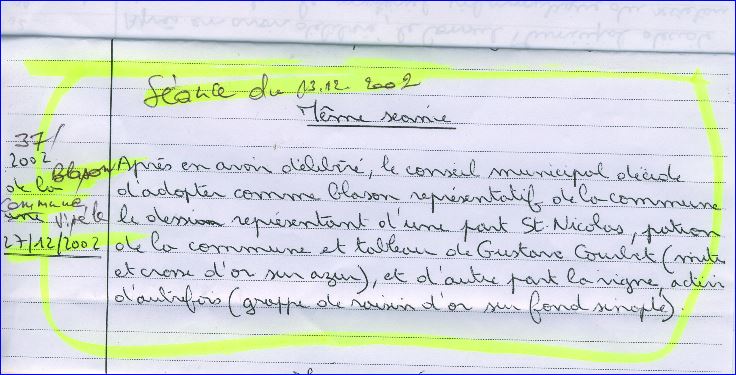 Séance du 13.12.2002
Même séance
37/
2002
Blason
de la
commune
Visé le
27/12/2002
Après en avoir délibéré, le conseil municipal décide
d'adopter comme blason représentatif de la commune
le dessin représentant d'une part St Nicolas, patron
de la commune et tableau de Gustave Courbet (mitre
et crosse d'or sur azur), et d'autre part la vigne,
d'autrefois (grappe de raisin d'or sur fond sinople).